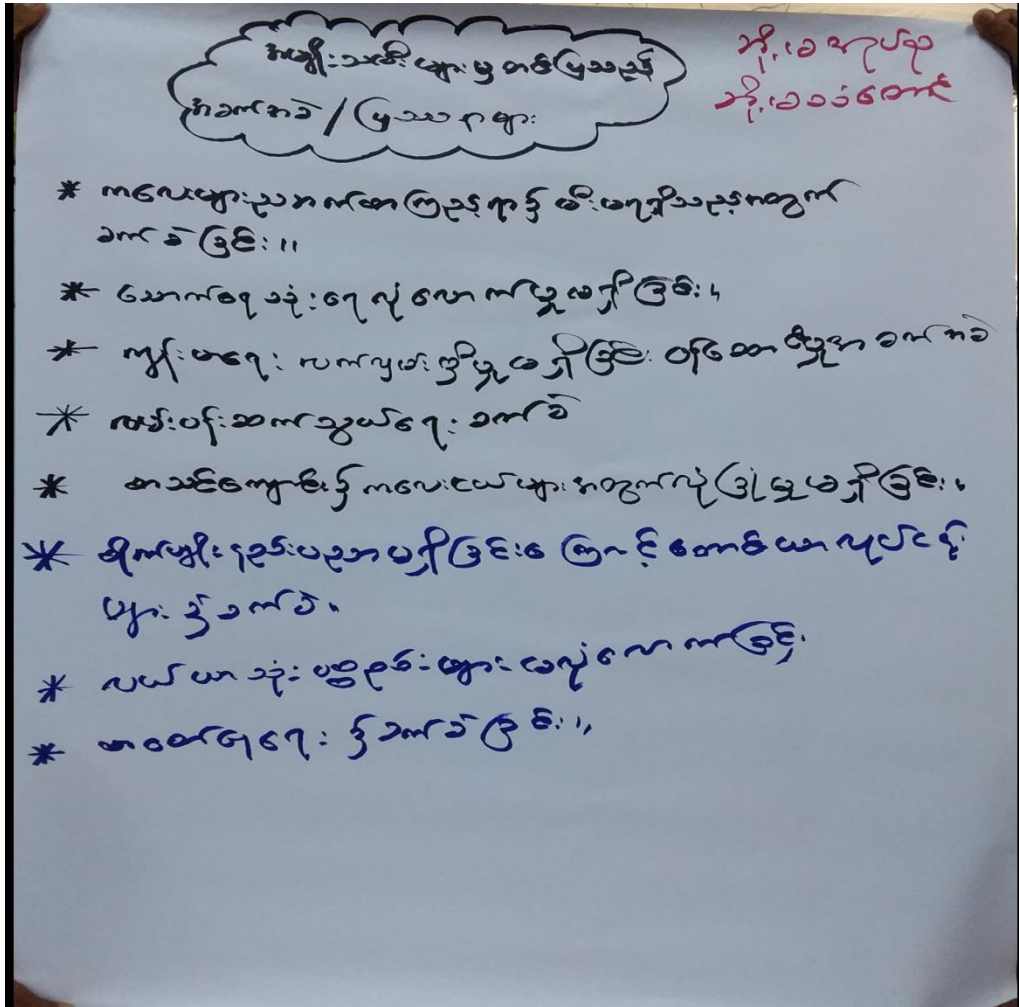 အမျိုးသမီးများမှ တင်ပြသည့်
အခက်အခဲ / ပြဿနာများ
* ကလေးများညဘက်စာကြည့်ရာ၌ မီးမရှိသည့်အတွက်
ခက်ခဲခြင်း။
* သောက်ရေ သုံးရေ လုံလောက်မှု မရှိခြင်း၊
* ကျန်းမာရေး လက်လှမ်းမှီမှု မရှိခြင်း ဝန်ဆောင်မှုအခက်အခဲ
* လမ်းပန်းဆက်သွယ်ရေး ခက်ခဲ
* စာသင်ကျောင်း၌ ကလေးငယ်များအတွက်လုံခြုံမှုမရှိခြင်း၊
* စိုက်ပျိုးနည်းပညာမရှိခြင်းကြောင့် တောင်ယာလုပ်ငန်း
များ ၌ခက်ခဲ။
* လယ်ယာသုံး ပစ္စည်းများ မလုံလောက်ခြင်း
* စားဝတ်နေရေး ၌ခက်ခဲခြင်း။